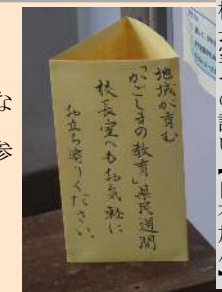 地域が育む
「かごしまの教育」県民週間
校長室へもお気軽に
お立ち寄りください。
な
参